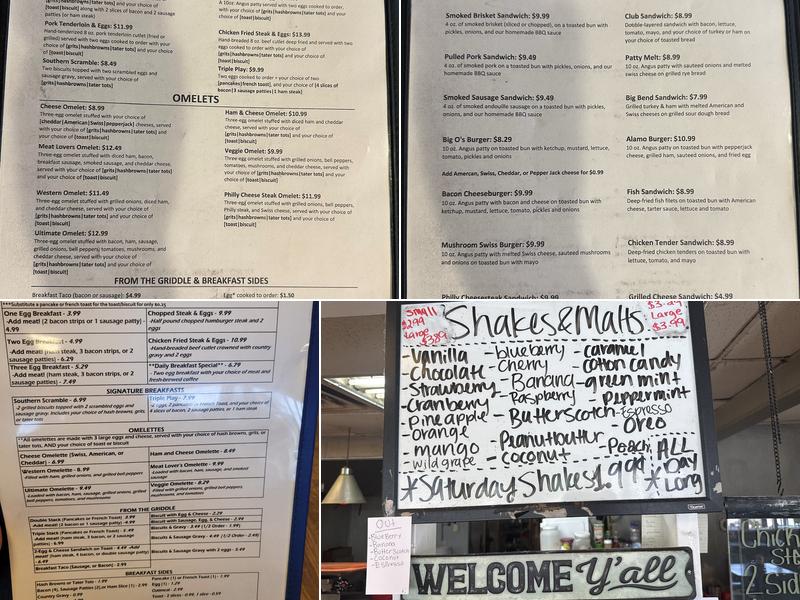 [toast|biscuit] along with 2 slices of bacon and 2 sausage
patties (or ham steak)
Pork Tenderloin & Eggs: $11.99
Hand-tenderized 8 oz. pork tenderloin cutlet (fried or
grilled) served with two eggs cooked to order with your
choice of [grits|hashbrowns|tater tots] and your choice
of [toast|biscuit]
Southern Scramble: $8.49
Two biscuits topped with two scrambled eggs and
sausage gravy, served with your choice of
[grits|hashbrowns|tater tots]
A 10oz. Angus patty served with two eggs cooked to order,
with your choice of [grits|hashbrowns|tater tots] and your
choice of [toast|biscuit]
Chicken Fried Steak & Eggs: $13.99
Hand-breaded 8 oz. cutlet deep fried and served with two
eggs cooked to order with your choice of
[grits|hashbrowns|tater tots] and your choice of
[toast|biscuit]
Triple Play: $9.99
Two eggs cooked to order + your choice of two
[pancakes|french toast], and your choice of [4 slices of
bacon|3 sausage patties|1 ham steak]
OMELETS
Cheese Omelet: $8.99
Three-egg omelet stuffed with your choice of
[cheddar|American|Swiss|pepperjack] cheeses, served
with your choice of [grits|hashbrowns|tater tots] and
your choice of [toast|biscuit]
Meat Lovers Omelet: $12.49
Three-egg omelet stuffed with diced ham, bacon,
breakfast sausage, smoked sausage, and cheddar cheese,
served with your choice of
[grits|hashbrowns|tater tots] and your choice of
[toast|biscuit]
Western Omelet: $11.49
Three-egg omelet stuffed with grilled onions, diced ham,
and cheddar cheese, served with your choice of
[grits|hashbrowns|tater tots] and your choice of
[toast|biscuit]
Ultimate Omelet: $12.99
Three-egg omelet stuffed with bacon, ham, sausage,
grilled onions, bell peppers, tomatoes, mushrooms, and
cheddar cheese, served with your choice of
[grits|hashbrowns|tater tots] and your choice of
[toast|biscuit]
Ham & Cheese Omelet: $10.99
Three-egg omelet stuffed with diced ham and cheddar
cheese, served with your choice of
[grits|hashbrowns|tater tots] and your choice of
[toast|biscuit]
Veggie Omelet: $9.99
Three-egg omelet stuffed with grilled onions, bell peppers,
tomatoes, mushrooms, and cheddar cheese, served with
your choice of [grits|hashbrowns|tater tots] and your
choice of [toast|biscuit]
Philly Cheese Steak Omelet: $11.99
Three-egg omelet stuffed with grilled onions, bell peppers,
Philly steak, and Swiss cheese, served with your choice of
[grits|hashbrowns|tater tots] and your choice of
[toast|biscuit]
FROM THE GRIDDLE & BREAKFAST SIDES
Breakfast Taco (bacon or sausage): $4.99
Egg* cooked to order: $1.50
Smoked Brisket Sandwich: $9.99
4 oz. of smoked brisket (sliced or chopped), on a toasted bun with
pickles, onions, and our homemade BBQ sauce
Pulled Pork Sandwich: $9.49
4 oz. of smoked pork on a toasted bun with pickles, onions, and our
homemade BBQ sauce
Smoked Sausage Sandwich: $9.49
4 oz. of smoked andouille sausage on a toasted bun with pickles,
onions, and our homemade BBQ sauce
Big O's Burger: $8.29
10 oz. Angus patty on toasted bun with ketchup, mustard, lettuce,
tomato, pickles and onions
Add American, Swiss, Cheddar, or Pepper Jack cheese for $0.99
Bacon Cheeseburger: $9.99
10 oz. Angus patty with bacon and cheese on toasted bun with
ketchup, mustard, lettuce, tomato, pickles and onions
Mushroom Swiss Burger: $9.99
10 oz. Angus patty with melted Swiss cheese, sauteed mushrooms
and onions on toasted bun with mayo
Philly Cheesesteak Sandwich: $9.99
Club Sandwich: $8.99
Dobble-layered sandwich with bacon, lettuce,
tomato, mayo, and your choice of turkey or ham on
your choice of toasted bread
Patty Melt: $8.99
10 oz. Angus patty with sauteed onions and melted
swiss cheese on grilled rye bread
Big Bend Sandwich: $7.99
Grilled turkey & ham with melted American and
Swiss cheeses on grilled sour dough bread
Alamo Burger: $10.99
10 oz. Angus patty on toasted bun with pepperjack
cheese, grilled ham, sauteed onions, and fried egg
Fish Sandwich: $8.99
Deep-fried fish filets on toasted bun with American
cheese, tarter sauce, lettuce and tomato
Chicken Tender Sandwich: $8.99
Deep-fried chicken tenders on toasted bun with
lettuce, tomato, and mayo
Grilled Cheese Sandwich: $4.99
***Substitute a pancake or french toast for the toast/biscuit for only $0.25
One Egg Breakfast - 3.99
-Add meat! (2 bacon strips or 1 sausage patty) -
4.99
Two Egg Breakfast - 4.99
-Add meat (ham steak, 3 bacon strips, or 2
sausage patties) - 6.29
Three Egg Breakfast - 5.29
-Add meat! (ham steak, 3 bacon strips, or 2
sausage patties) - 7.49
Chopped Steak & Eggs - 9.99
-Half pound chopped hamburger steak and 2
eggs
Chicken Fried Steak & Eggs - 10.99
-Hand-breaded beef cutlet crowned with country
gravy and 2 eggs
**Daily Breakfast Special** - 6.79
- Two egg breakfast with your choice of meat and
fresh-brewed coffee
SIGNATURE BREAKFASTS
Southern Scramble - 6.99
-2 grilled biscuits topped with 2 scrambled eggs and
sausage gravy. Includes your choice of hash browns, grits,
or tater tots
Triple Play - 7.99
-2 eggs, 2 pancakes or French Toast, and your choice of
4 slices of bacon, 2 sausage patties, or 1 ham steak
OMELETTES
**All omelettes are made with 3 large eggs and cheese, served with your choice of hash browns, grits, or
tater tots, AND your choice of toast or biscuit
Cheese Omelette (Swiss, American, or
Cheddar) - 6.99
Western Omelette - 8.99
-Filled with ham, grilled onions, and grilled bell peppers
Ultimate Omelette - 9.49
-Loaded with bacon, ham, sausage, grilled onions, grilled
bell peppers, tomatoes, and mushrooms
Ham and Cheese Omelette - 8.49
Meat Lover's Omelette - 9.99
-Loaded with bacon, ham, sausage, and smoked
sausage
Veggie Omelette - 8.29
-Filled with grilled onions, grilled bell peppers,
mushrooms, and tomatoes
FROM THE GRIDDLE
Double Stack (Pancakes or French Toast) - 3.99
-Add meat! (2 bacon or 1 sausage patty) - 4.99
Triple Stack (Pancakes or French Toast) - 5.49
-Add meat! (ham steak, 3 bacon, or 2 sausage patties)
- 6.99
2-Egg & Cheese Sandwich on Toast - 4.49 -Add
meat! (ham steak, 4 bacon, or double sausage patty)
- 6.49
Breakfast Taco (Bacon or Sausage) - 2.99
Biscuit with Egg & Cheese - 2.29
Biscuit with Sausage, Egg, & Cheese - 2.99
Biscuits & Gravy - 3.49 (1/2 Order - 1.99)
Biscuits & Sausage Gravy - 4.49 (1/2 Order - 2.49)
Biscuits & Sausage Gravy with 2 eggs - 5.49
BREAKFAST SIDES
Hash Browns or Tater Tots - 1.99
Country Gravy - 0.99
Pancake (1) or French Toast (1) - 1.99
Egg (1) - 1.29
Oatmeal - 2.99
Small
$2.99
Large
$3.89
Shakes & Malts
$3.29
Large
$3.99
-Vanilla
-Chocolate
-Strawberry
-Cranberry
-Pineapple
-Orange
-mango
-wild grape
-blueberry
-Cherry
-Banana
-Raspberry
-Butterscotch
-Peanutbutter
-coconut
-caramel
-cotton candy
-green mint
-Peppermint
-Espresso
-Oreo
-Peach
*Saturday Shakes 1.99
*ALL
Day
Long
Out
-Blueberry
-Banana
-Butterscotch
-Coconut
-Espresso
WELCOME Y'all
Chick
Ste
2 Sid